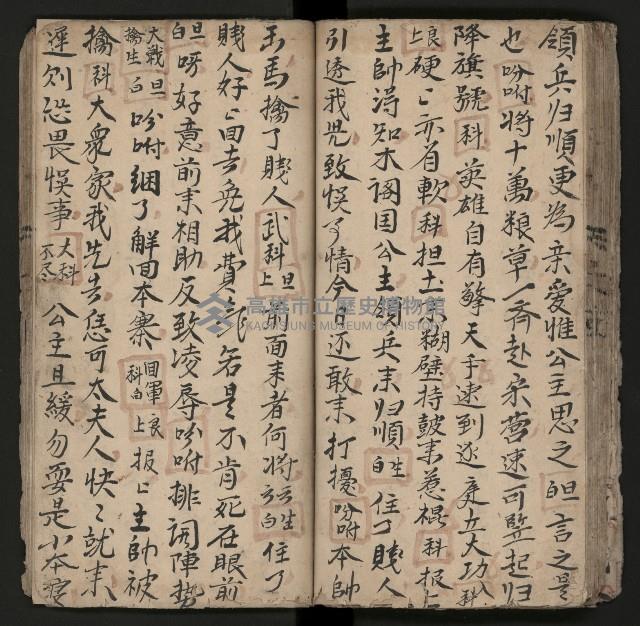 領兵归順更為亲愛惟公主思之 旦白 言之是
也吩咐将十萬粮草一齊赴宋营速可監起归
降旗號 科 英雄自有擎天手速到逐是立大功 科
上 良 硬〻亦有軟 科 担土糊壁持鼓来惹棍 科 报上
主帥淂知木阁国公主領兵来归順 生白 住了賤人
引逺我兄致悮事情今日还敢来打擾 吩咐 本帥
出馬擒了賤人 武科 旦上 前面来者何将 云 生白 住了
賤人好〻回去免我費 名是不肯死在眼前
旦白 呀好意前来相助反致凌辱吩咐排詞陣势
大戰擒生 旦白 吩咐綑了觧回本寨 回軍科白 良上 报〻主帥被
擒 科 大衆家我先去恁可太夫人快〻就来
遲则恐畏悮事 大科不尽 公主且緩勿耍是小本官
高雄市立歷史博物館
KAOHSIUNG MUSEUM OF HISTORY